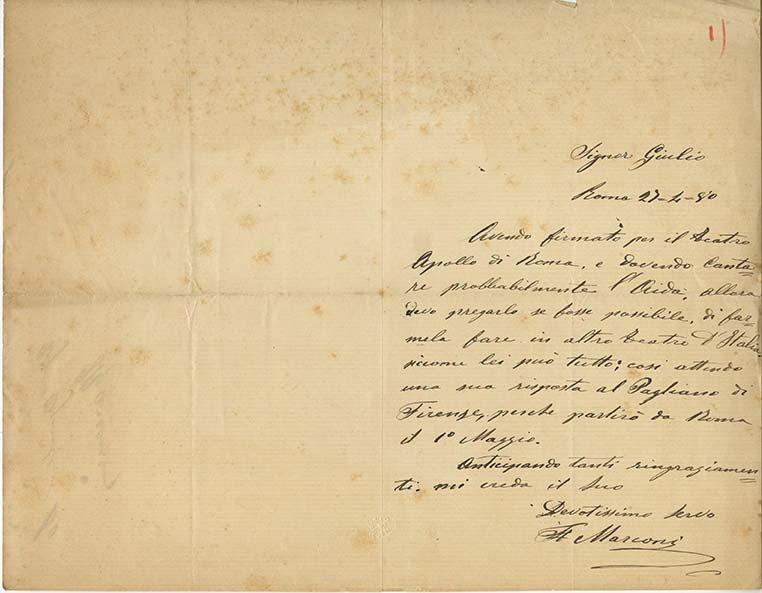 1)
Signor Giulio
Roma 27-4-80
Avendo firmato per il Teatro
Apollo di Roma, e dovendo canta=
re probbabilmente l'Aida, allora
devo pregarlo se fosse possibile, di far=
mela fare in altro Teatro d'Italia,
siccome lei può tutto; così attendo
una sua risposta al Pagliano di
Firenze, perche partirò da Roma
il 1º Maggio.
Anticipando tanti ringraziamen=
ti. mi creda il Suo
Devotissimo servo
Marconi